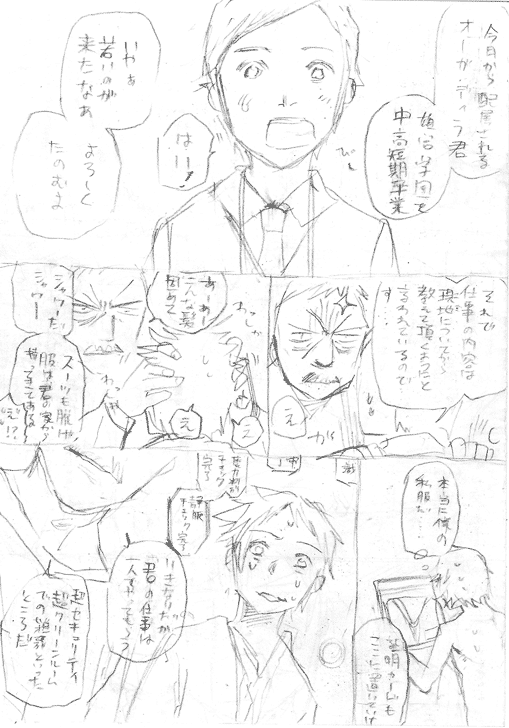 今日から配属される
オーガ
君
学園を
中高短期卒業
はいっ
いやぁ
若いのが
来たなあ
よろしく
たのむよ
それで
仕事の内容は
現地についてから
教えて頂くようにと
言われているので
すが
え
あーあー
こんな髪
固めて
シャワーだ
シャワー
え
え
スーツも脱げ
服は君の家から
持って来てある
え!?
本当に僕の
私服だ…
ここに置いていけ
チェック
完了
静脈
チェック完了
いきなりだが
君の仕事は
一人でやってもらう
超セキュリティ
超クリーンルーム
での
といった
ところだ